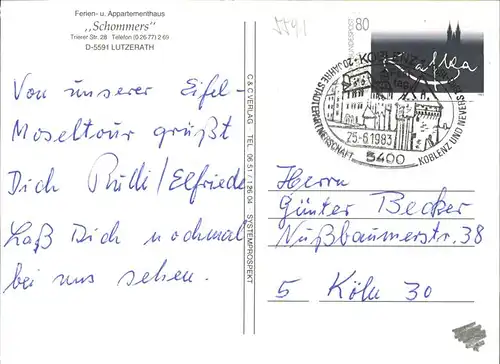 Ferien- u. Appartementhaus
„Schommers"
Trierer Str. 28 Telefon (0 26 77) 2 69
D-5591 LUTZERATH
Von unserer Eifel-
Moseltour grüßt
Dich Rudi/Elfriede
Laß Dich nochmal
bei uns sehen.
C & C VERLAG TEL. 06 51 / 1 26 04 SYSTEMPROSPEKT
5591
80
BUNDESPOST
Kafka
KOBLENZ
20 JAHRE STÄDTEPARTNERSCHAFT
KOBLENZ UND NEVERS
25-6.1983
5400
Herrn
Günter Becker
Nußbaumerstr. 38
5 Köln 30